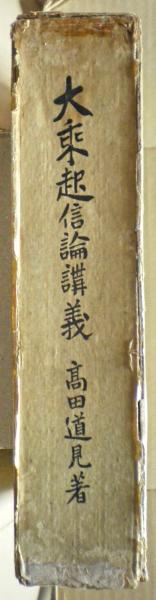 大乘起信論講義 髙田道見著